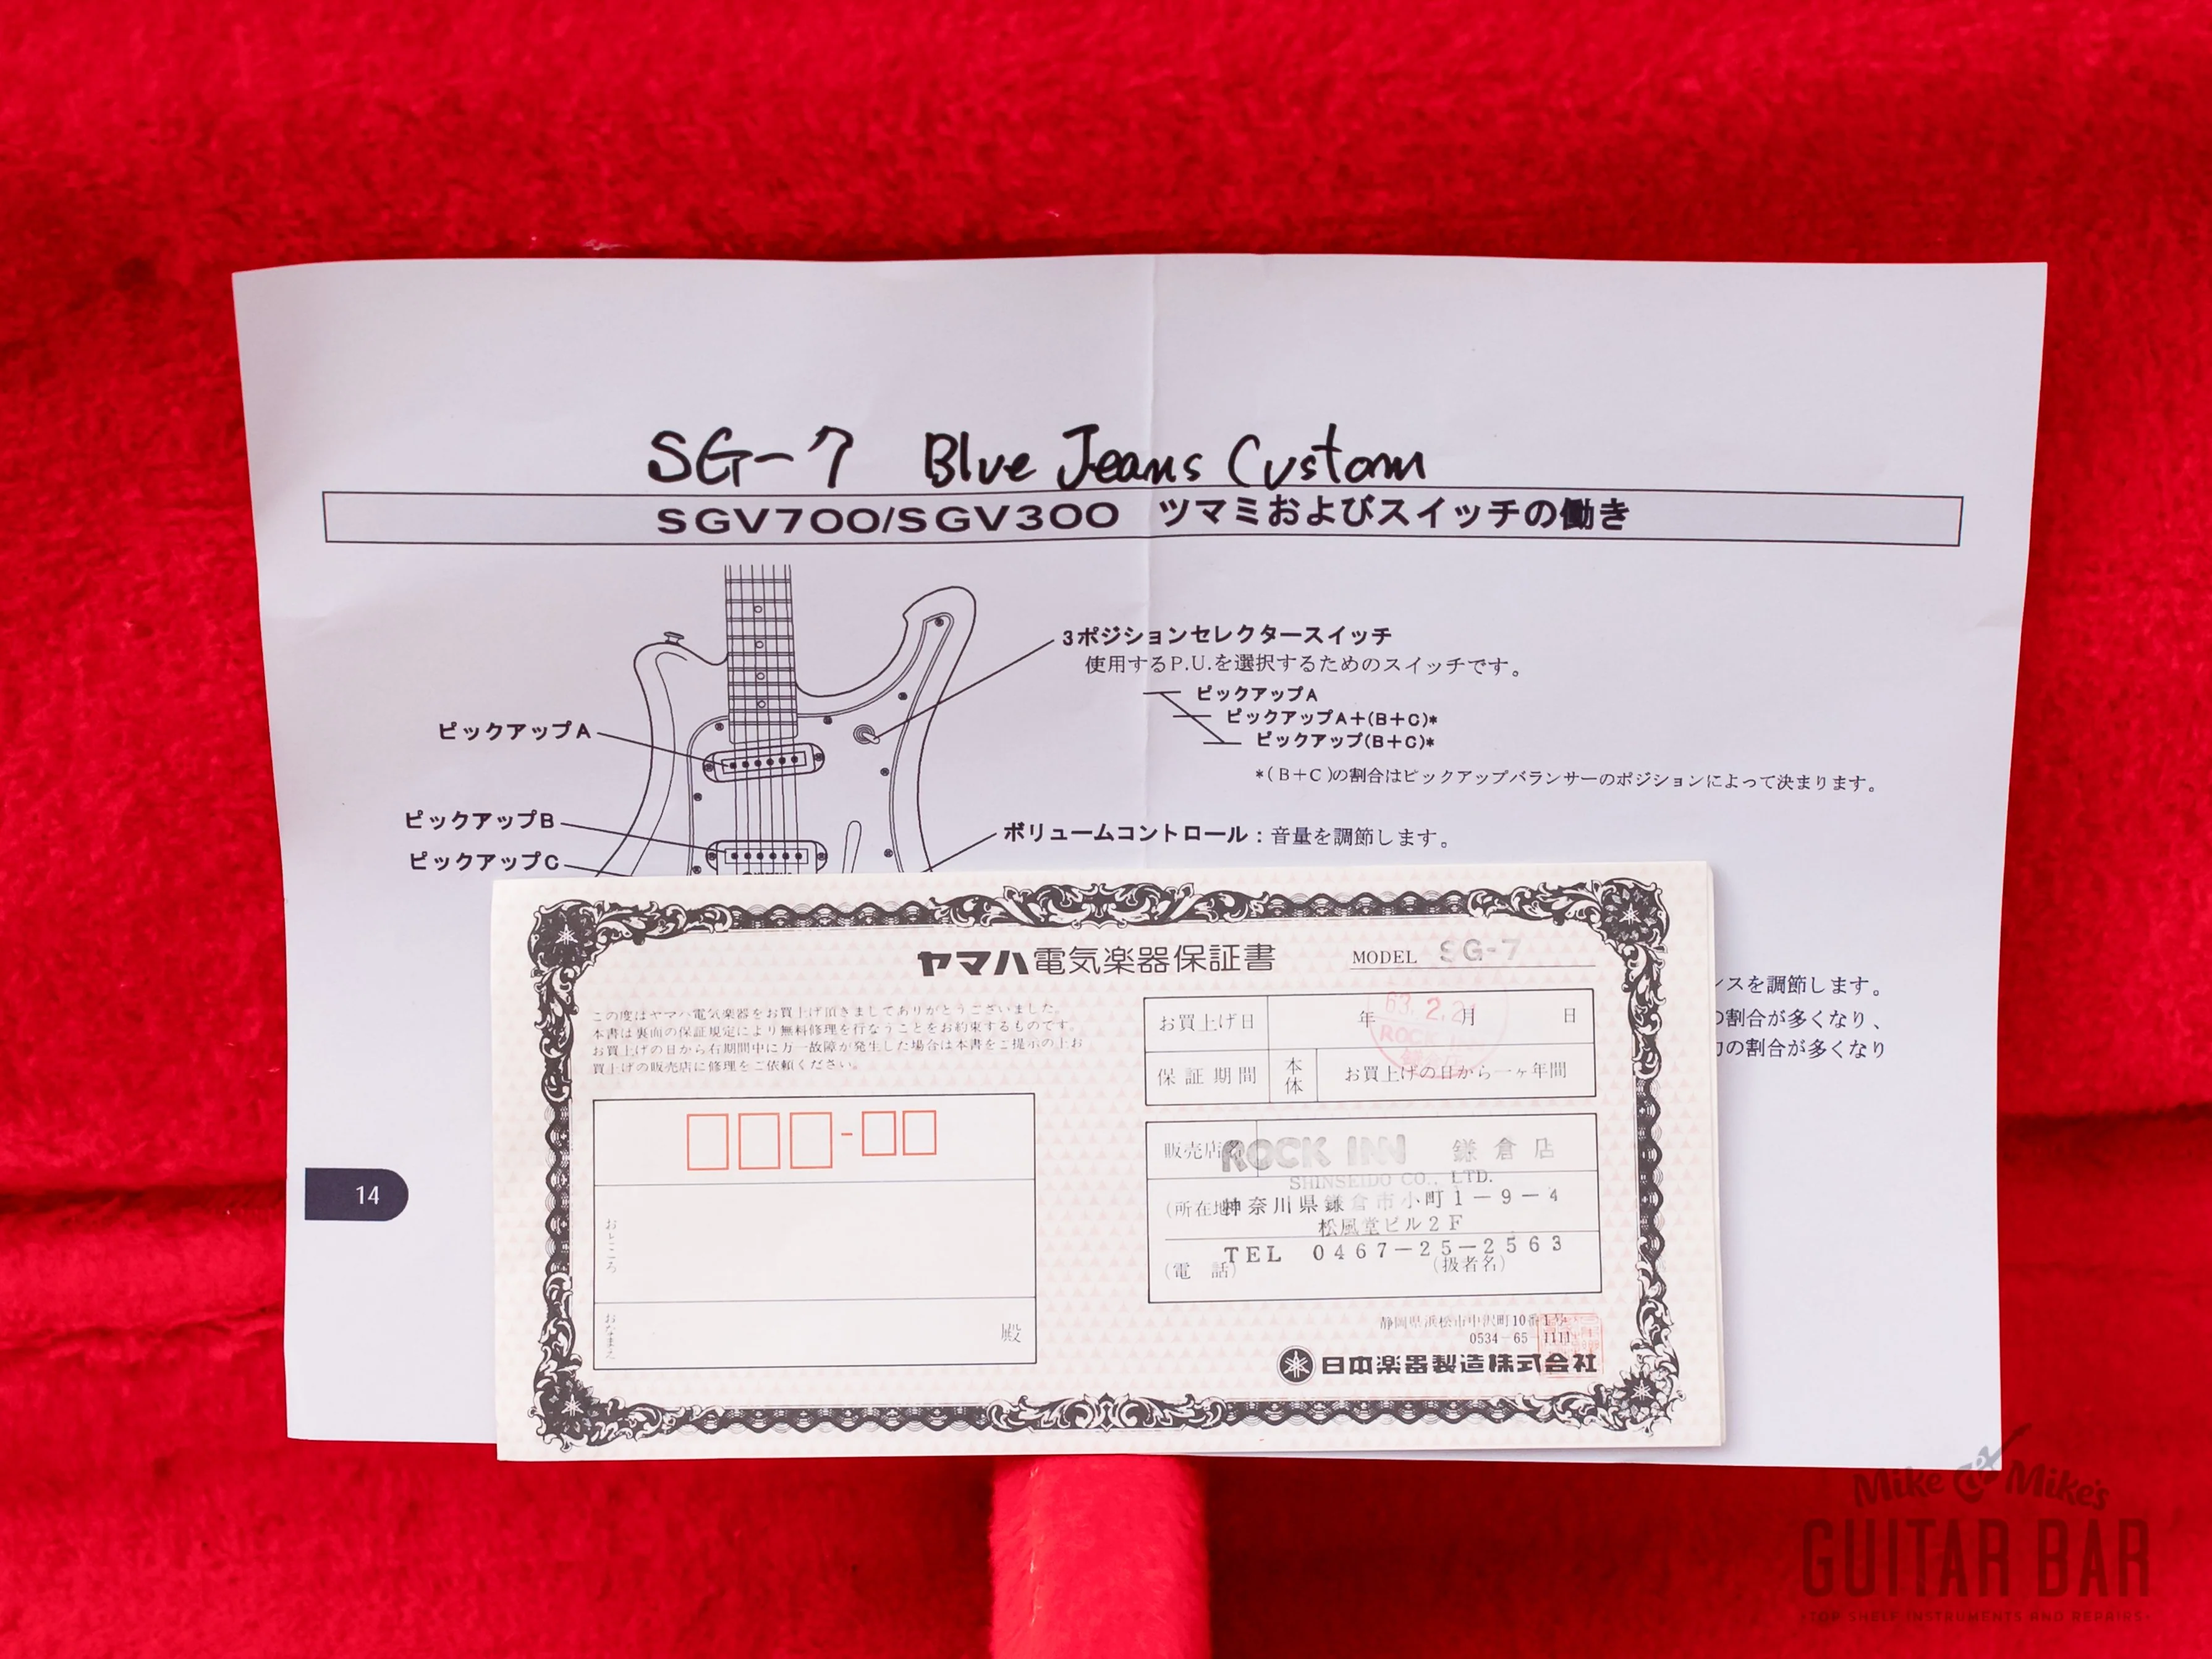 SG-7 Blue Jeans Custom
SGV700/SGV300 ツマミおよびスイッチの働き
3ポジションセレクタースイッチ
使用するP.U.を選択するためのスイッチです。
ピックアップA
ピックアップA+(B+C)*
ピックアップ(B+C)*
*(B+C)の割合はピックアップバランサーのポジションによって決まります。
ピックアップA
ピックアップB
ピックアップC
ボリュームコントロール：音量を調節します。
ンスを調節します。
の割合が多くなり、
の割合が多くなり
14
ヤマハ電気楽器保証書
MODEL SG-7
この度はヤマハ電気楽器をお買上げ頂きましてありがとうございました。
本書は裏面の保証規定により無料修理を行なうことをお約束するものです。
お買上げの日から右期間中に万一故障が発生した場合は本書をご提示の上お
買上げの販売店に修理をご依頼ください。
お買上げ日 年 月 日
63.2.21
ROCK
保証期間 本体 お買上げの日から一ヶ年間
おところ
おなまえ 殿
販売店名 ROCK INN 鎌倉店
SHINSEIDO CO., LTD.
(所在地) 神奈川県鎌倉市小町1-9-4
松風堂ビル2F
TEL 0467-25-2563
(電話) (扱者名)
静岡県浜松市中沢町10番1号
0534-65-1111
日本楽器製造株式会社
Mike & Mike's
GUITAR BAR
TOP SHELF INSTRUMENTS AND REPAIRS